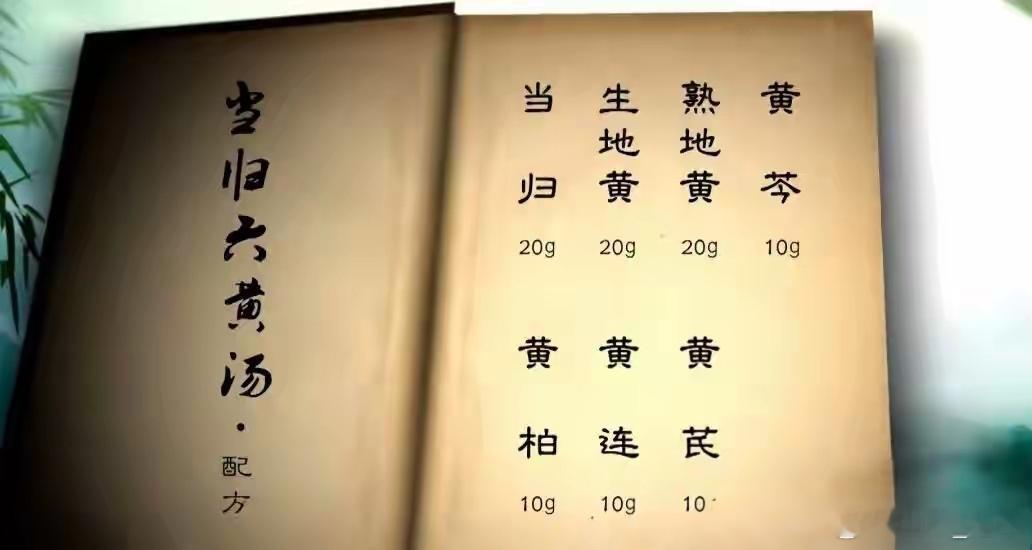 当归六黄汤·配方
当归 20g
生地黄 20g
熟地黄 20g
黄芩 10g
黄柏 10g
黄连 10g
黄芪 10